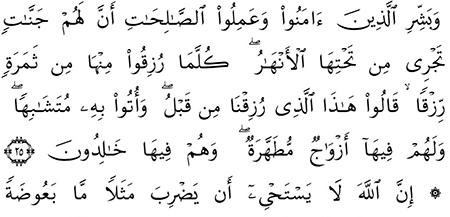 وَبَشِّرِ ٱلَّذِينَ ءَامَنُوا۟ وَعَمِلُوا۟ ٱلصَّـٰلِحَـٰتِ أَنَّ لَهُمْ جَنَّـٰتٍ
تَجْرِى مِن تَحْتِهَا ٱلْأَنْهَـٰرُ ۖ كُلَّمَا رُزِقُوا۟ مِنْهَا مِن ثَمَرَةٍ
رِّزْقًا ۙ قَالُوا۟ هَـٰذَا ٱلَّذِى رُزِقْنَا مِن قَبْلُ ۖ وَأُتُوا۟ بِهِۦ مُتَشَـٰبِهًا ۖ
وَلَهُمْ فِيهَآ أَزْوَٰجٌ مُّطَهَّرَةٌ ۖ وَهُمْ فِيهَا خَـٰلِدُونَ ﴿٢٥﴾
۞ إِنَّ ٱللَّهَ لَا يَسْتَحْىِۦٓ أَن يَضْرِبَ مَثَلًا مَّا بَعُوضَةً